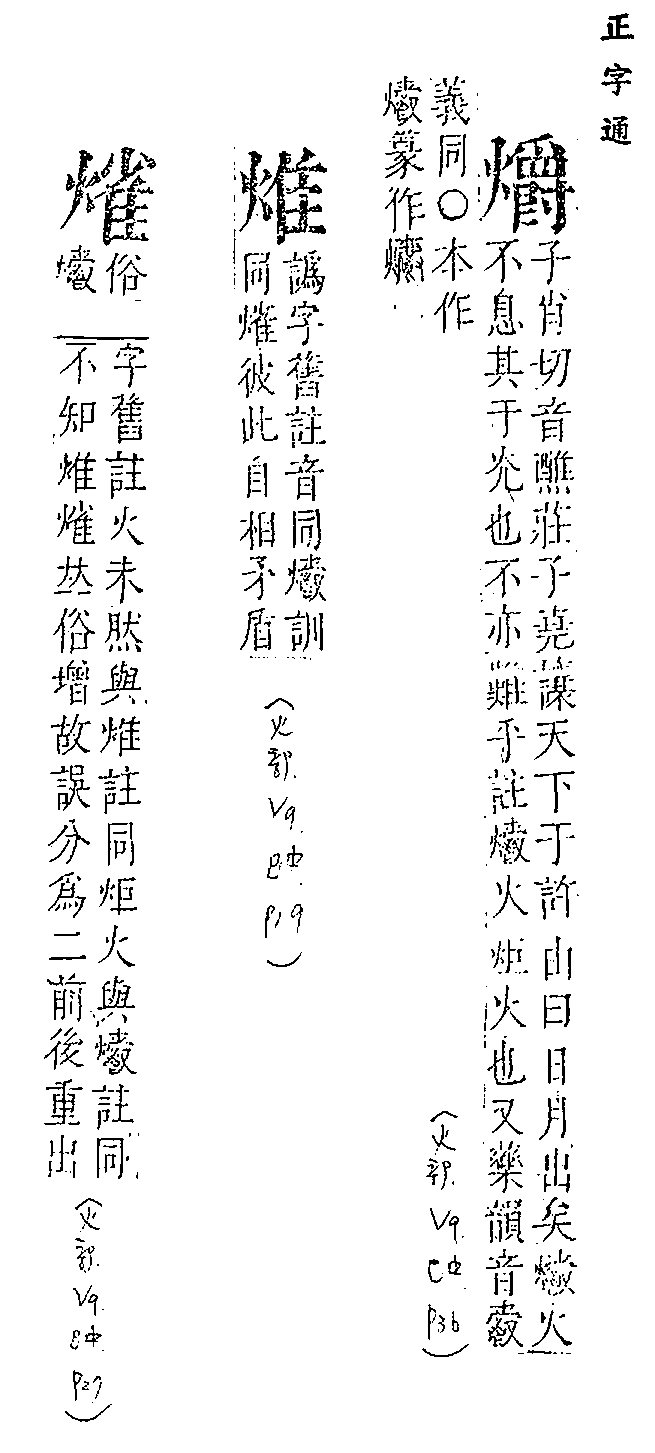 正字通
爝
子肖切音醮莊子堯讓天下于許由曰日月出矣爝火
不息其于光也不亦難乎註爝火炬火也又藥韻音爵
義同○本作
爝篆作
(火部 V9 巳中 P36)
㷅
譌字舊註音同爝訓
同㸌彼此自相矛盾
(火部 V9 巳中 P19)
㸌
俗
爝
字舊註火未然與㷅註同炬火與爝註同
不知㷅㸌𠀤俗增故誤分爲二前後重出
(火部 V9 巳中 P27)